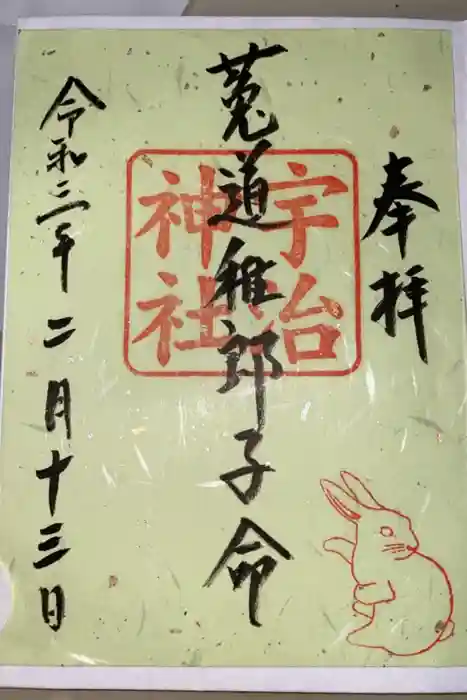 奉拝
菟道稚郎子命
宇治神社
令和三年二月十三日